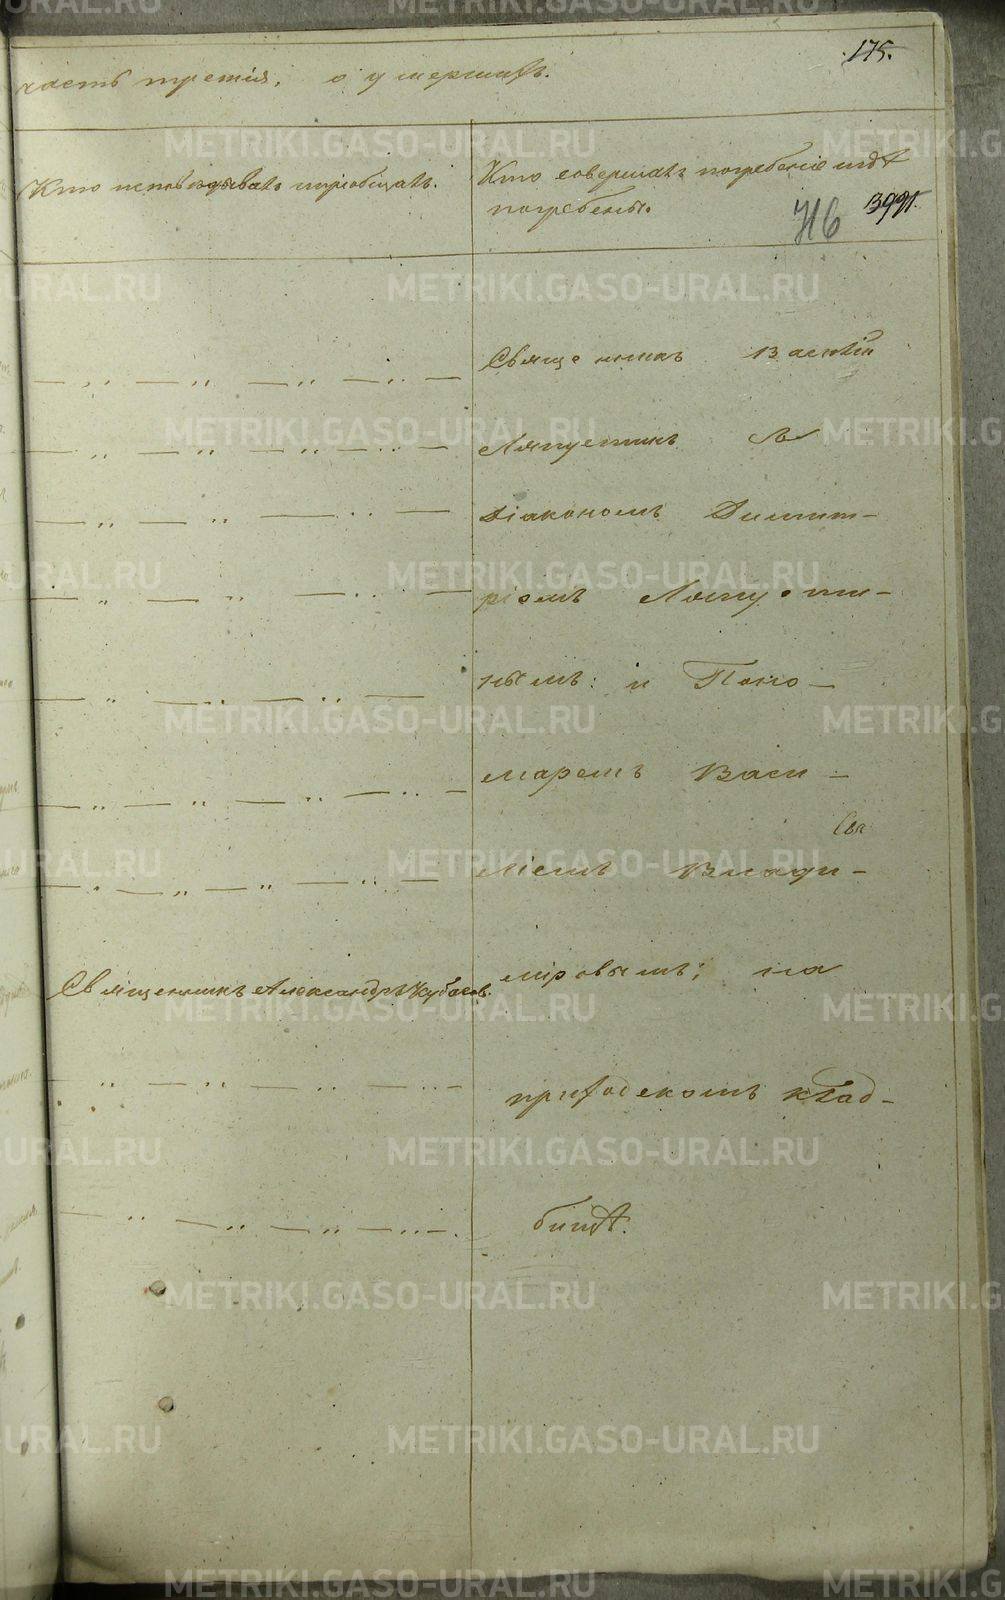 175.
часть третія, о умершихъ.
Кто исповѣдывалъ и приобщалъ.
Кто совершалъ погребеніе и гдѣ
погребены.
716
Священникъ Василій
Ляпустинъ съ
Діакономъ Димит-
ріемъ Ляпусти-
нымъ: и Поно-
маремъ Васи-
ліемъ Влади-
міровымъ; на
Священникъ Александръ
приходскомъ клад-
бищѣ.
METRIKI.GASO-URAL.RU